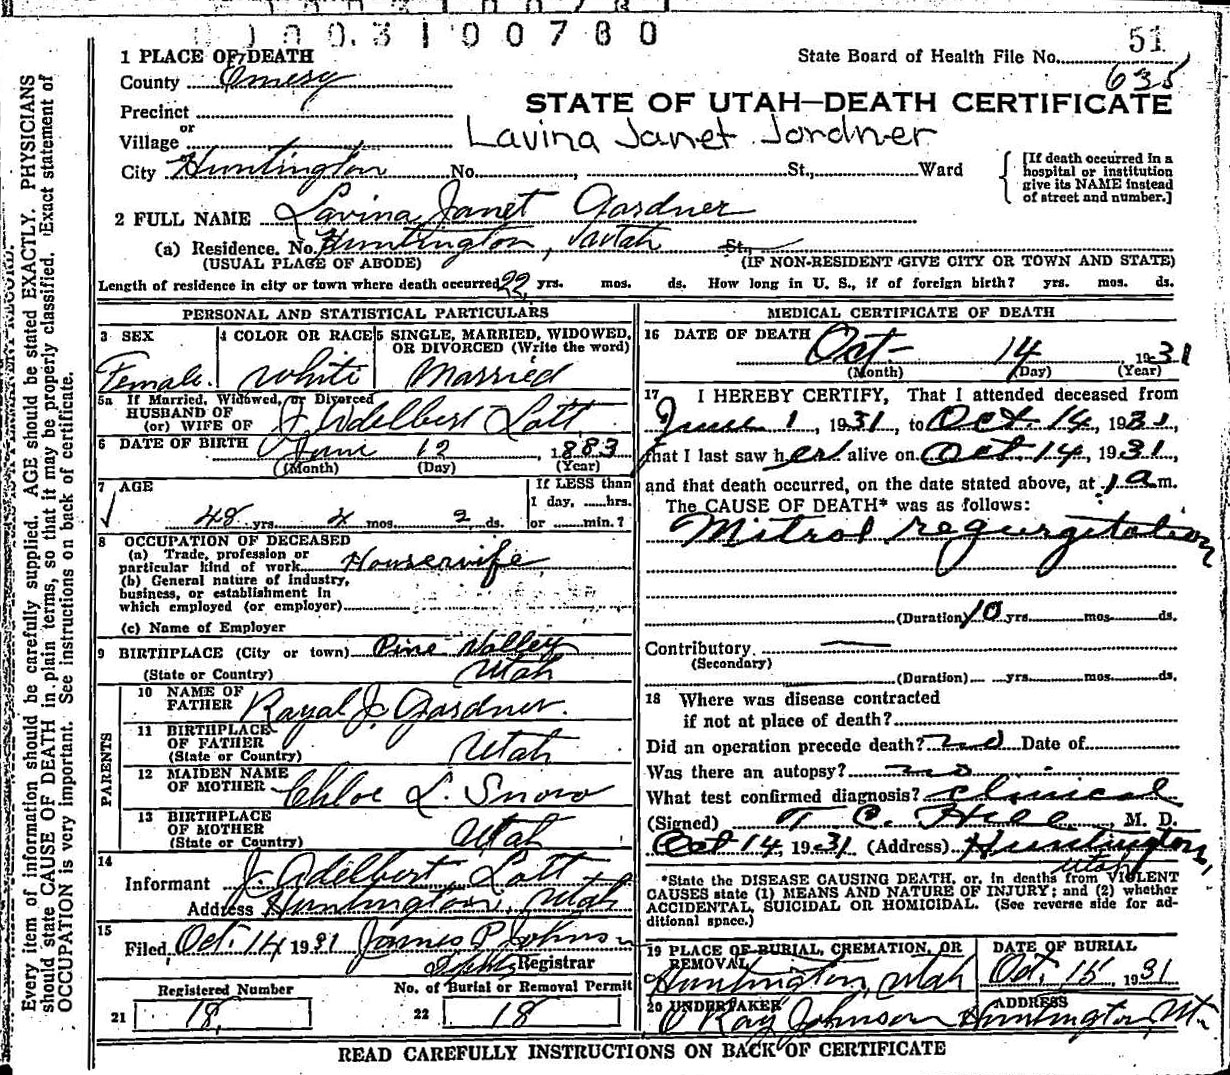 1003100780
51
State Board of Health File No.
635
1 PLACE OF DEATH
County Emery
STATE OF UTAH—DEATH CERTIFICATE
Precinct
or
Village
Lavina Janet Jordner
City Huntington No. , St., Ward
[If death occurred in a hospital or institution give its NAME instead of street and number.]
2 FULL NAME Lavina Janet Gardner
(a) Residence. No. Huntington, Utah St.
(USUAL PLACE OF ABODE) (IF NON-RESIDENT GIVE CITY OR TOWN AND STATE)
Length of residence in city or town where death occurred 22 yrs. mos. ds. How long in U. S., if of foreign birth? yrs. mos. ds.
PERSONAL AND STATISTICAL PARTICULARS
3 SEX
Female.
4 COLOR OR RACE
White
5 SINGLE, MARRIED, WIDOWED, OR DIVORCED (Write the word)
Married
5a If Married, Widowed, or Divorced
HUSBAND OF
(or) WIFE OF J Adelbert Lott
6 DATE OF BIRTH 12, 1883
(Month) (Day) (Year)
7 AGE
48 yrs. 4 mos. 2 ds.
If LESS than
1 day, hrs.
or min.?
8 OCCUPATION OF DECEASED
(a) Trade, profession or
particular kind of work Housewife
(b) General nature of industry,
business, or establishment in
which employed (or employer)
(c) Name of Employer
9 BIRTHPLACE (City or town) Pine Valley
(State or Country) Utah
PARENTS
10 NAME OF
FATHER Royal J. Gardner.
11 BIRTHPLACE
OF FATHER
(State or Country) Utah
12 MAIDEN NAME
OF MOTHER Chloe L. Snow
13 BIRTHPLACE
OF MOTHER
(State or Country) Utah
14
Informant J. Adelbert Lott
Address Huntington, Utah
15
Filed Oct. 14 1931 James P Johnson
Registrar
Registered Number
21 18
No. of Burial or Removal Permit
22 18
MEDICAL CERTIFICATE OF DEATH
16 DATE OF DEATH Oct- 14 1931
(Month) (Day) (Year)
17 I HEREBY CERTIFY, That I attended deceased from
June 1, 1931, to Oct. 14, 1931,
that I last saw her alive on Oct. 14, 1931,
and that death occurred, on the date stated above, at 1 a m.
The CAUSE OF DEATH* was as follows:
Mitral regurgitation
(Duration) 10 yrs. mos. ds.
Contributory —
(Secondary)
(Duration) yrs. mos. ds.
18 Where was disease contracted
if not at place of death?
Did an operation precede death? no Date of
Was there an autopsy? no
What test confirmed diagnosis? clinical
(Signed) T. C. Hill, M. D.
Oct 14, 1931 (Address) Huntington,
Utah
*State the DISEASE CAUSING DEATH, or, in deaths from VIOLENT
CAUSES state (1) MEANS AND NATURE OF INJURY; and (2) whether
ACCIDENTAL, SUICIDAL OR HOMICIDAL. (See reverse side for ad-
ditional space.)
19 PLACE OF BURIAL, CREMATION, OR
REMOVAL
Huntington, Utah
DATE OF BURIAL
Oct. 15, 1931
20 UNDERTAKER
Ray Johnson
ADDRESS
Huntington, Ut.
READ CAREFULLY INSTRUCTIONS ON BACK OF CERTIFICATE
Every item of information should be carefully supplied. AGE should be stated EXACTLY. PHYSICIANS
should state CAUSE OF DEATH in plain terms, so that it may be properly classified. Exact statement of
OCCUPATION is very important. See instructions on back of certificate.